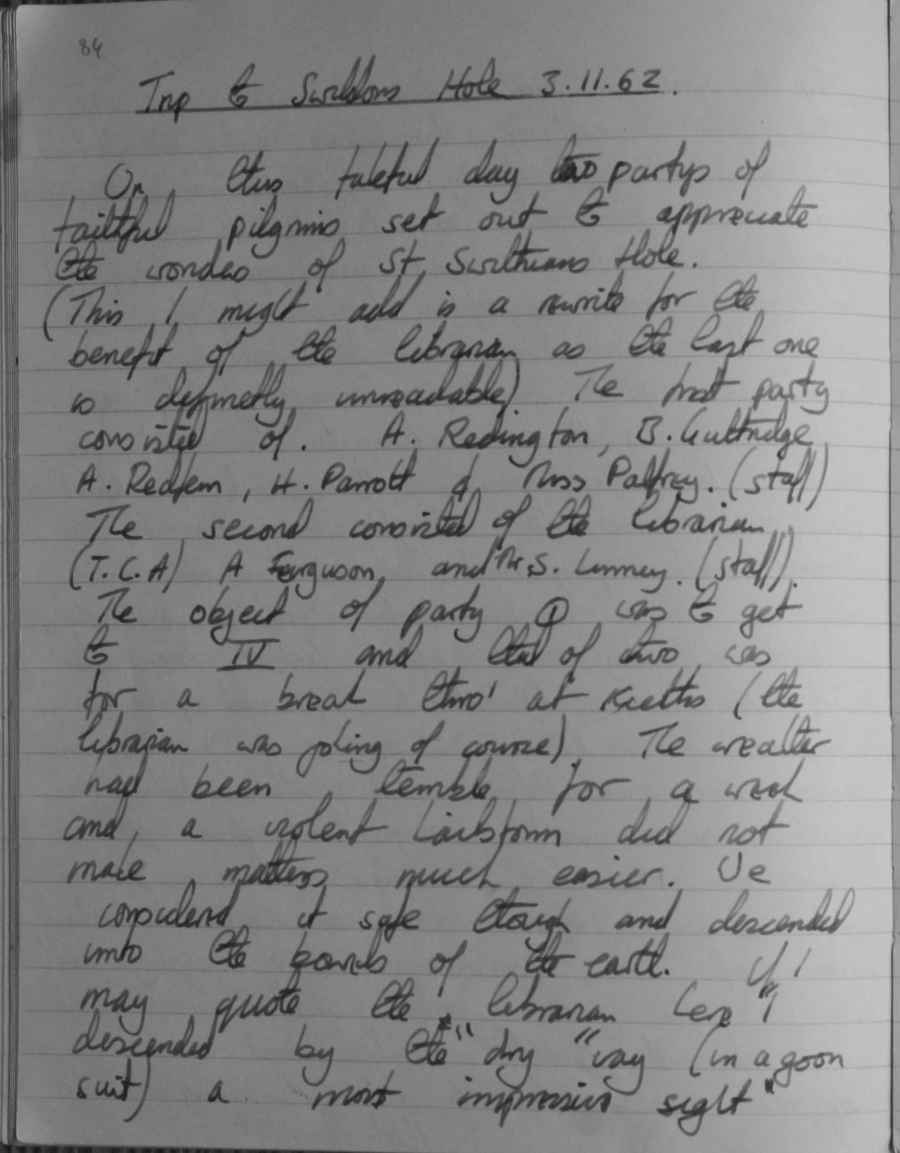 84
Trip to Swildons Hole 3.11.62.
On this fateful day two partys of
faithful pilgrims set out to appreciate
the wonders of St Swithians Hole.
(This I might add is a rewrite for the
benefit of the librarian as the last one
is definetly unreadable) The first party
consisted of. A. Redington, B. Guttridge
A. Redfern, H. Parrott & Miss Palfrey. (staff)
The second consisted of the librarian,
(T.C.A) A Ferguson, and Mr. S. Linney. (staff).
The object of party ① was to get
to IV and that of two was
for a break thro' at Kieths (the
librarian was joking of course). The weather
had been terrible for a week
and a violent hailstorm did not
make matters much easier. We
considered it safe though and descended
into the bowels of the earth. If I
may quote the librarian here "I
descended by the "dry" way (in a goon
suit) a most impressive sight"